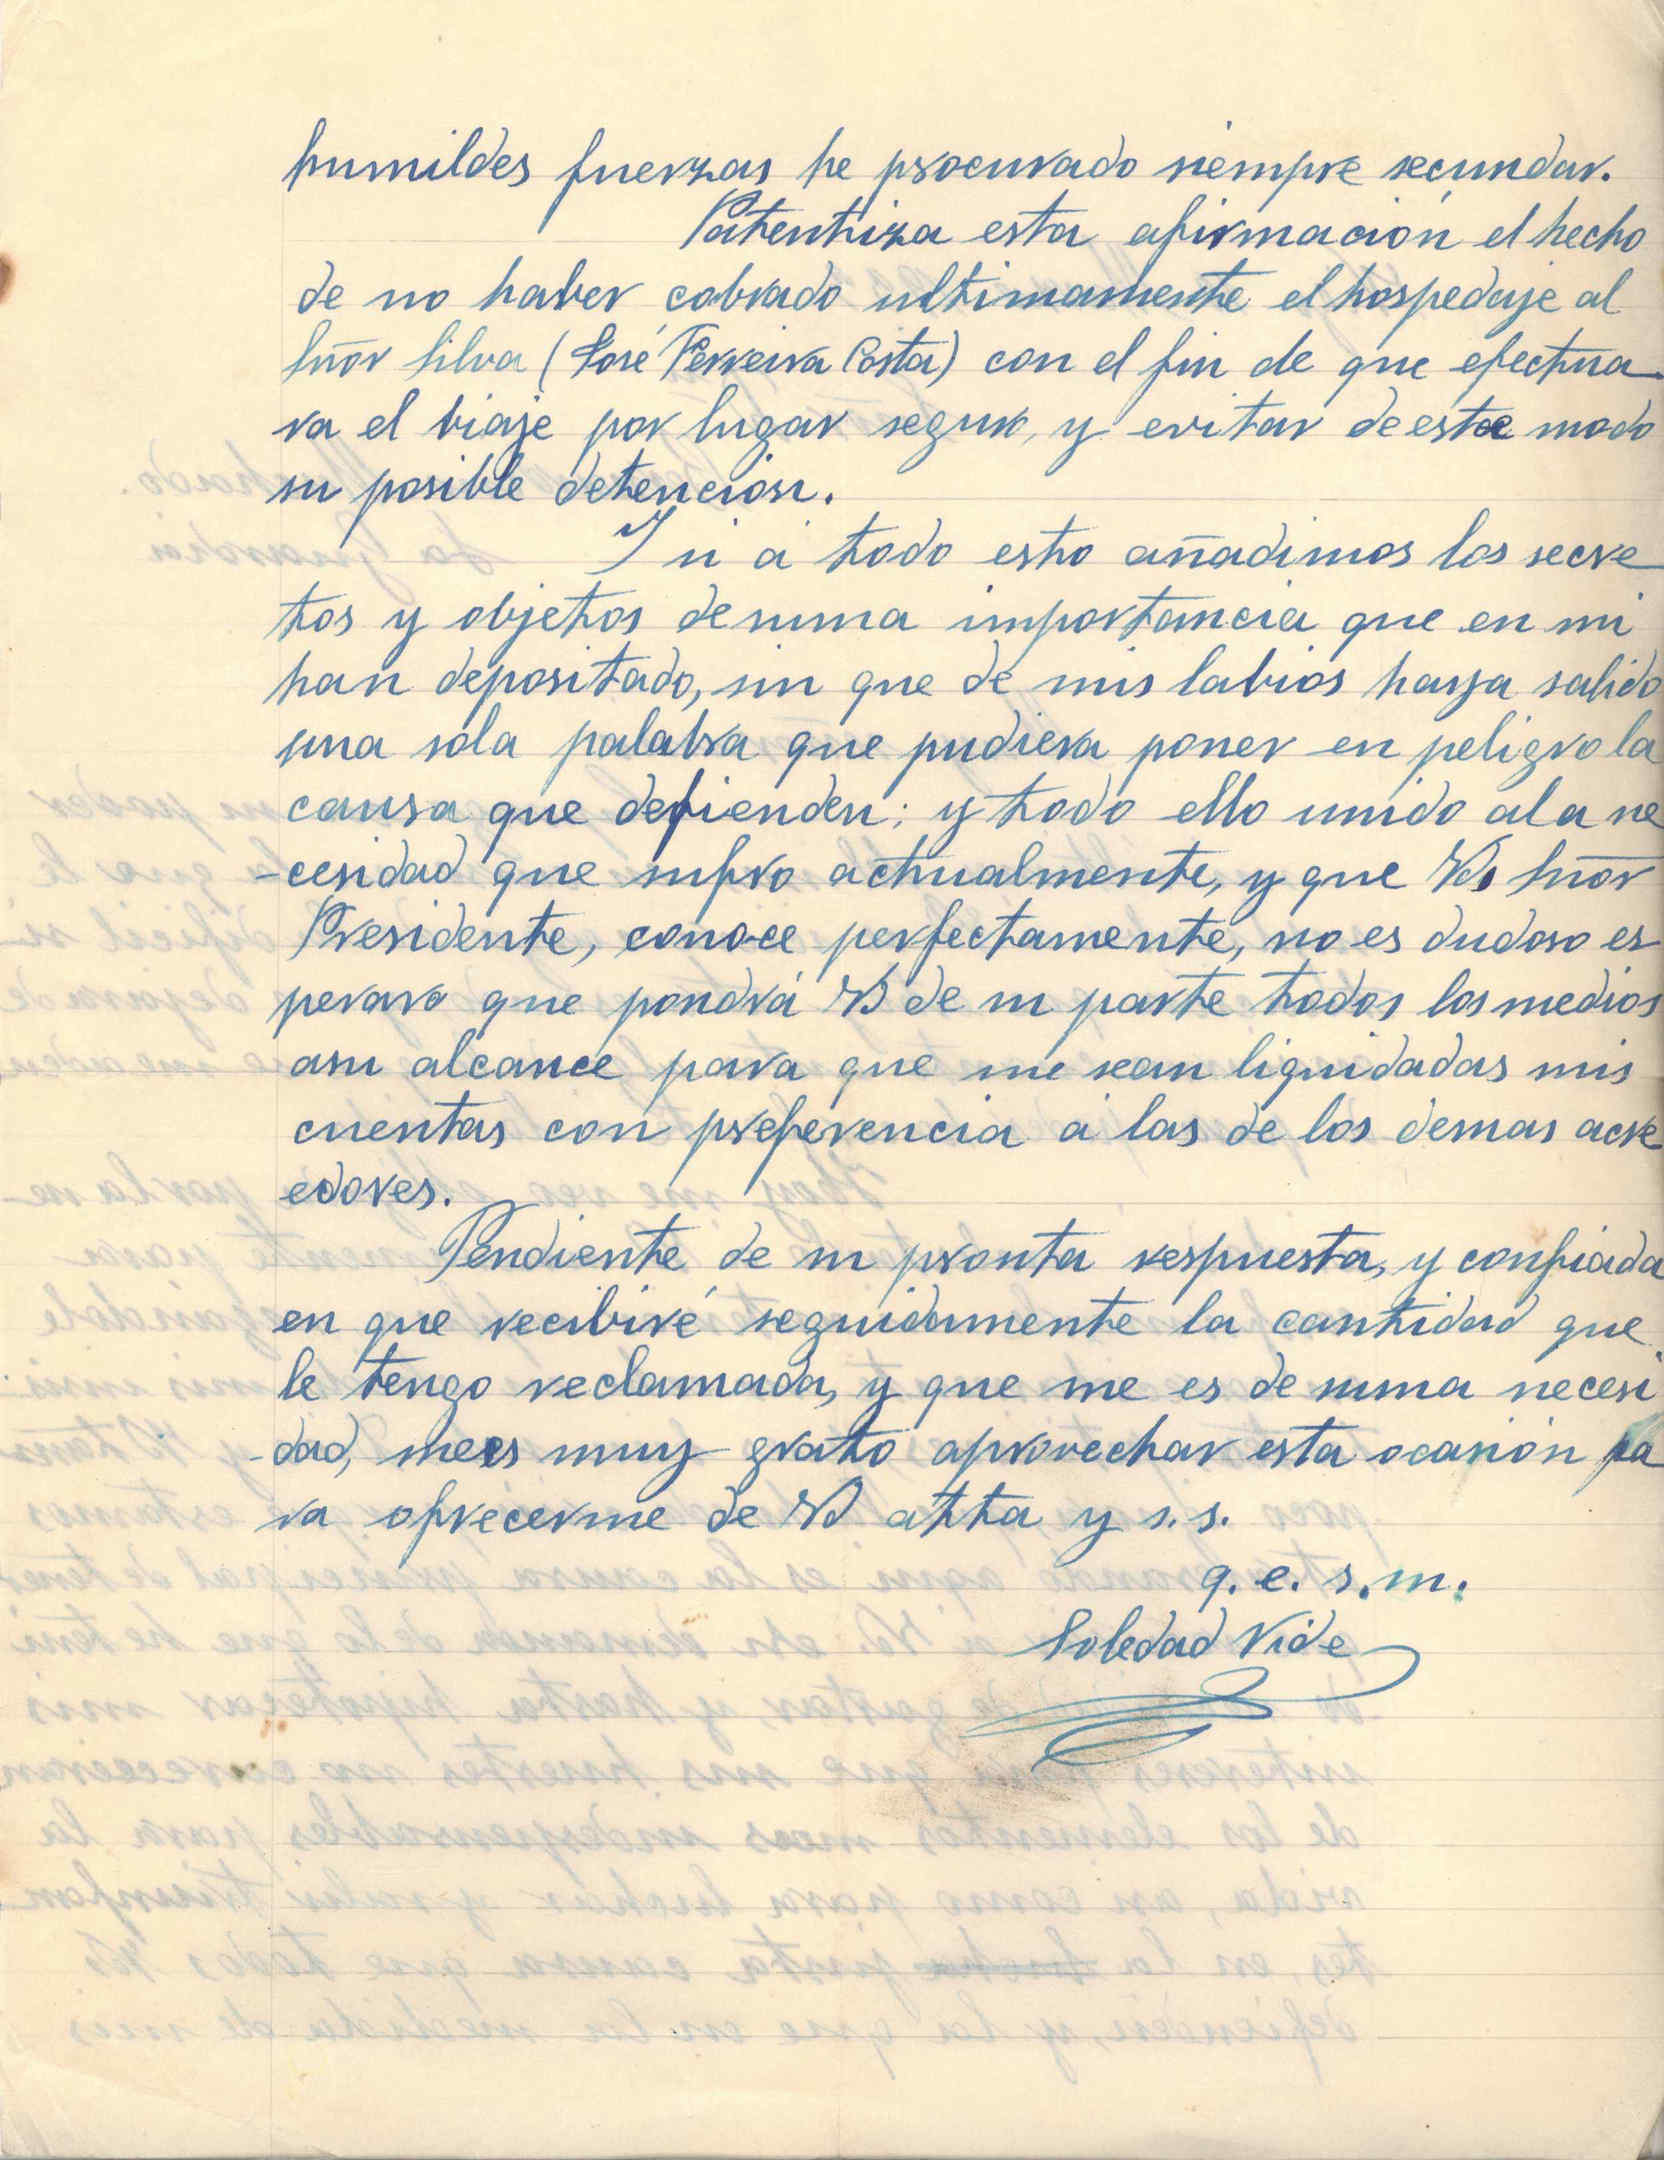 humildes fuerzas he procurado siempre secundar.
Patentiza esta afirmación el hecho
de no haber cobrado ultimamente el hospedaje al
Sñor Silva (José Ferreira Costa) con el fin de que efectua
ra el biaje por lugar seguro, y evitar de este modo
su posible detención.
Y si á todo esto añadimos los secre
tos y objetos de suma importancia que en mi
han depositado, sin que de mis labios haya salido
una sola palabra que pudiera poner en peligro la
causa que defienden; y todo ello unido a la ne
-cesidad que sufro actualmente, y que Vd. Sñor
Presidente, conoce perfectamente, no es dudoso es
perara que pondrá Vd de su parte todos los medios
a su alcance para que me sean liquidadas mis
cuentas con preferencia á las de los demas acre
edores.
Pendiente de su pronta respuesta, y confiada
en que recibiré seguidamente la cantidad que
le tengo reclamada, y que me es de suma necesi
-dad, me es muy grato aprovechar esta ocasión pa
ra ofrecerme de Vd atta y s.s.
q. e. s. m.
Soledad Vide